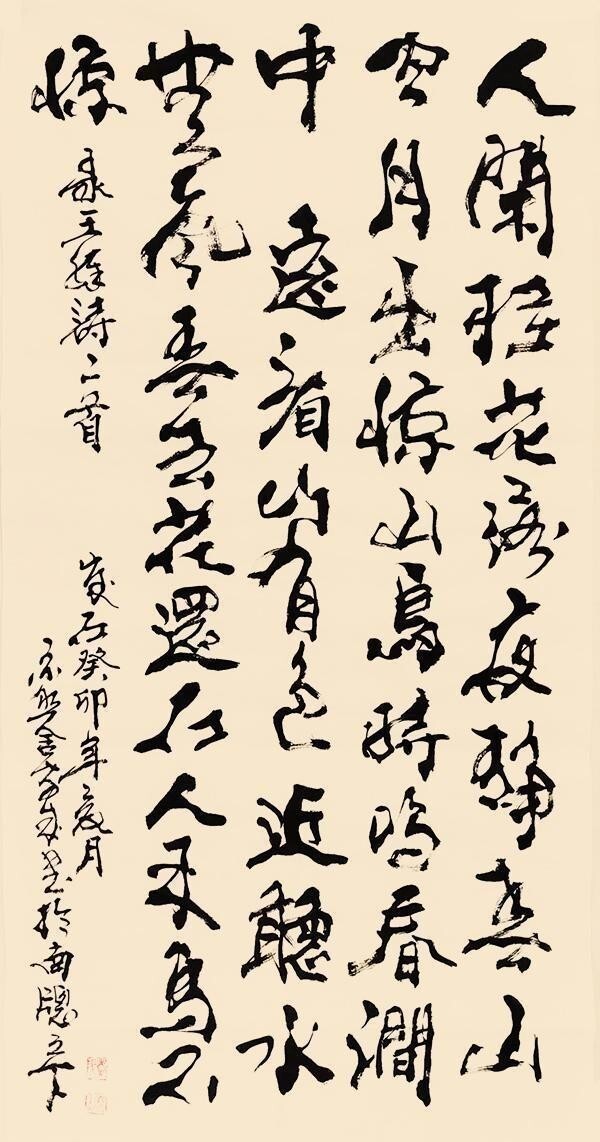 人閑桂花落夜靜春山
空月出惊山鳥時鳴春澗
中 遠看山有色近聽水
無聲春去花還在人來鳥不
惊 录王維詩二首
歲在癸卯年夏月
於南牕之下